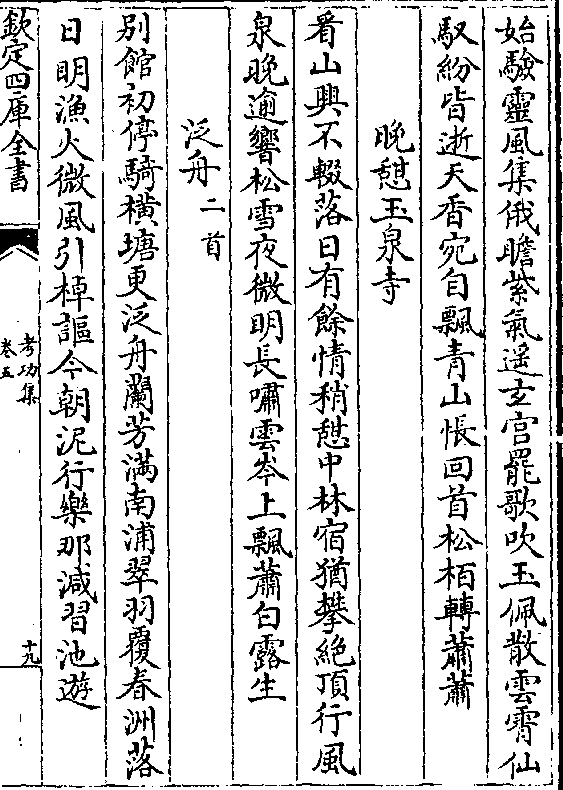 始驗靈風集俄瞻紫氣遥玄宫罷歌吹玉佩散雲霄仙
馭紛皆逝天香宛自飄青山悵回首松栢轉蕭蕭
晚憇玉泉寺
看山興不輟落日有餘情稍憇中林宿猶攀絶頂行風
泉晚逾響松雪夜微明長嘯雲岑上飄蕭白露生
泛舟二首
别館初停騎横塘更泛舟蘭芳满南浦翠羽覆春洲落
日明漁火微風引棹謳今朝泥行樂那減習池遊
欽定四庫全書
考功集
卷五
十九